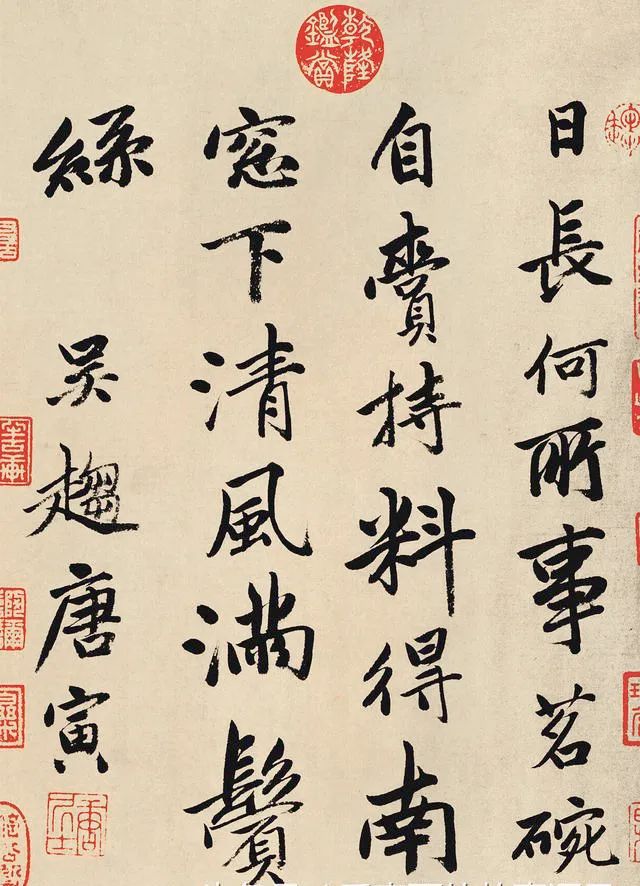 日長何所事茗碗
自賷持料得南
窓下清風滿鬢
絲 吳趨唐寅
乾隆鑑賞